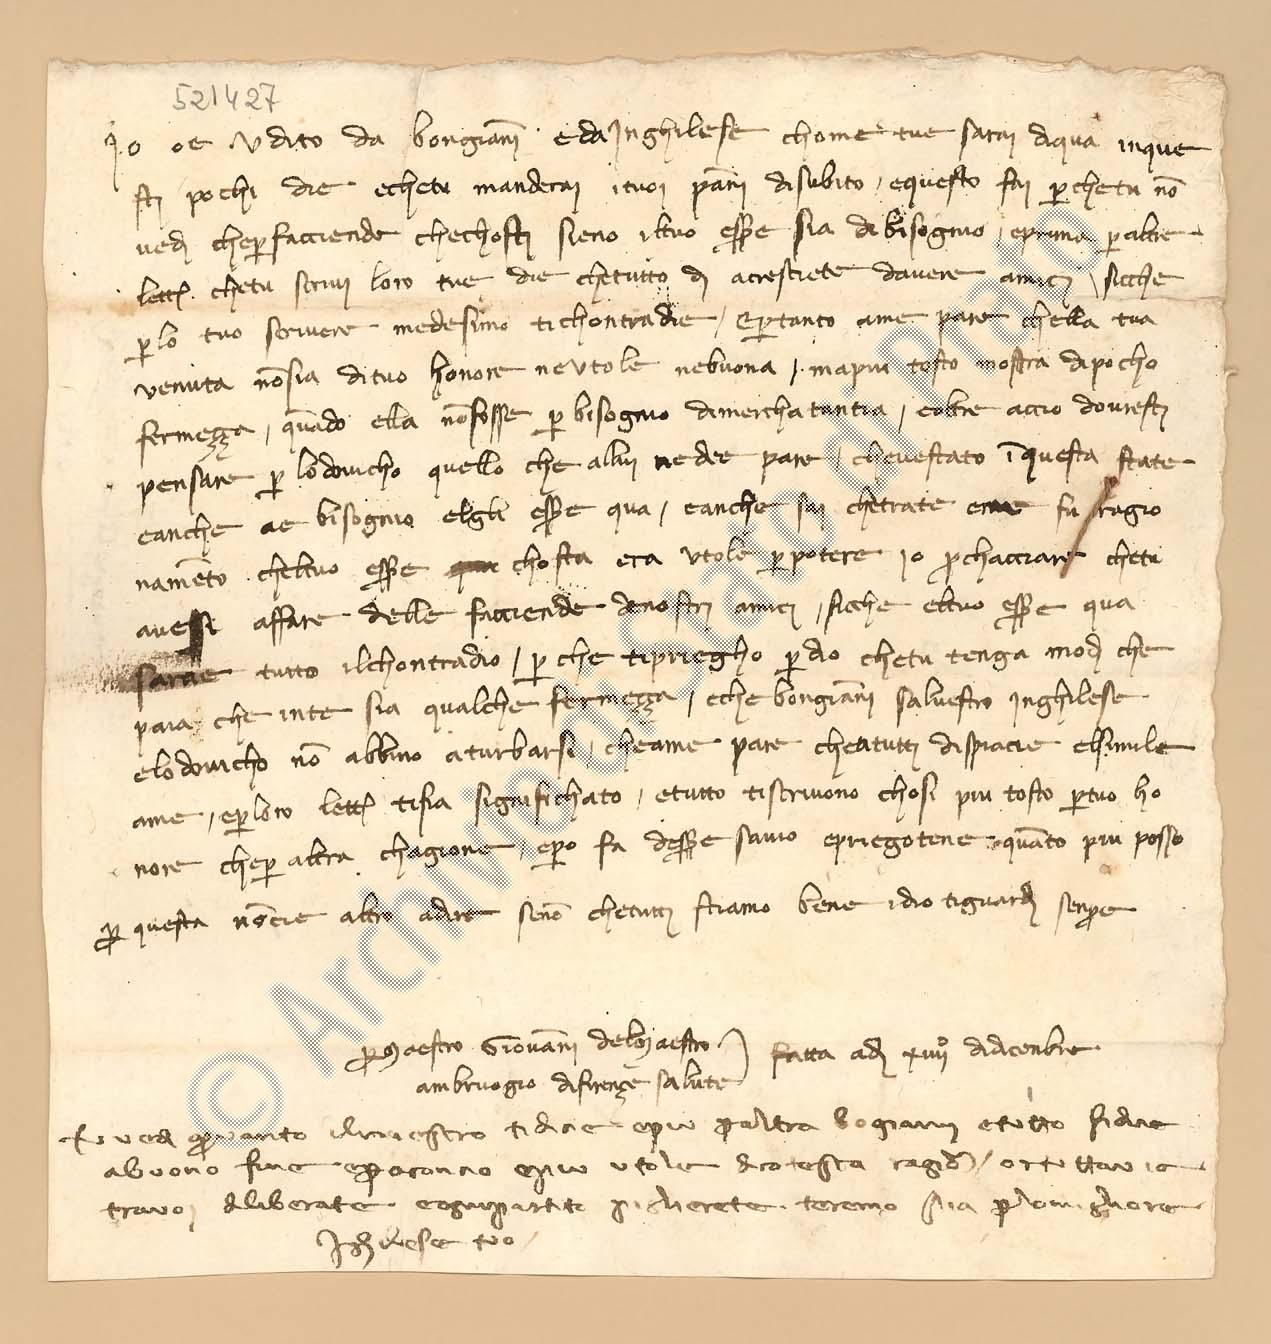 521427
Io oe udito da bongianni e da Inghilese chome tue sarai diqua inque
sti pochi die echetu manderai ituoi pani disubito / equesto fai perchetu nō
vedi cheperfacciende chechosti sieno iltuo essere sia di bisogno / eprima peraltre
lett. chetu scrivi loro tue die chetutto dì acresciete davere amici / sicche
perlo tuo scrivere medesimo tichontradie / epertanto ame pare chella tua
venuta nōsia dituo honore neutole nebuona / mapiu tosto mostra dipocho
fermezza / quādo ella nōfosse per bisogno dimerchatantia / eoltre accio dovresti
pensare per lodovicho quello che allui nedee pare / cheuestato īquesta state
eanche ae bisogno elgli essere qua / eanche sai chetrate fu ragio
namēto cheltuo essere chosta era utole perpotere io prochacciare chetu
avessi affare delle facciende denostri amici / sicche eltuo essere qua
sarae tutto ilchontradio / perche tipriegho perdio chetu tenga modi che
paia che inte sia qualche fermezza / eche bongianni salvestro Inghilese
elodovicho nō abbino aturbarsi / cheame pare cheatutti dispiacie elsimile
ame / eperloro lett. tisia significhato / etutto tiscrivono chosi piu tosto pertuo ho
nore cheper altra chagione / epero fa dessere savio epriegotene quāto piu posso
per questa nōcie altro adire senō chetutti stiamo bene idio tiguardi senpre
per Maestro Giovāni delMaestro
ambruogio difirenze salute
fatta adì xiiii didicenbre
Tu vedi quanto ilmaestro tidicie epiu per altra bogianni etutto sidicie
abuono fine epiu utole dicotesta ragiō / ortuttavie
travoi diliberate eognipartito pilgierete teremo sia perlomigliore
Inghilese tuo
© Archivio di Stato di Prato